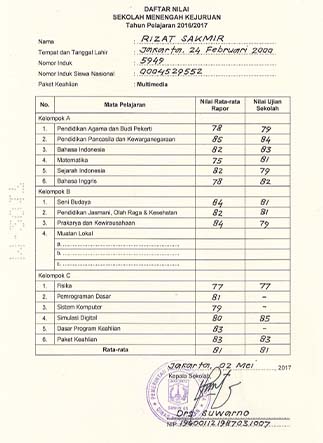 DAFTAR NILAI
SEKOLAH MENENGAH KEJURUAN
Tahun Pelajaran 2016/2017
Nama : RIZAT SAKMIR
Tempat dan Tanggal Lahir : Jakarta, 24 Februari 2000
Nomor Induk : 5949
Nomor Induk Siswa Nasional : 0004529552
Paket Keahlian : Multimedia
No. Mata Pelajaran Nilai Rata-rata Rapor Nilai Ujian Sekolah
Kelompok A
1. Pendidikan Agama dan Budi Pekerti 78 79
2. Pendidikan Pancasila dan Kewarganegaraan 85 84
3. Bahasa Indonesia 82 83
4. Matematika 75 81
5. Sejarah Indonesia 82 79
6. Bahasa Inggris 78 82
Kelompok B
1. Seni Budaya 84 81
2. Pendidikan Jasmani, Olah Raga & Kesehatan 82 81
3. Prakarya dan Kewirausahaan 84 79
4. Muatan Lokal
a.
b.
c.
Kelompok C
1. Fisika 77 77
2. Pemrograman Dasar 81 -
3. Sistem Komputer 79 -
4. Simulasi Digital 80 85
5. Dasar Program Keahlian 83 -
6. Paket Keahlian 83 83
Rata-rata 81 81
Jakarta, 02 Mei 2017
Kepala Sekolah
Drs. Suwarno
NIP